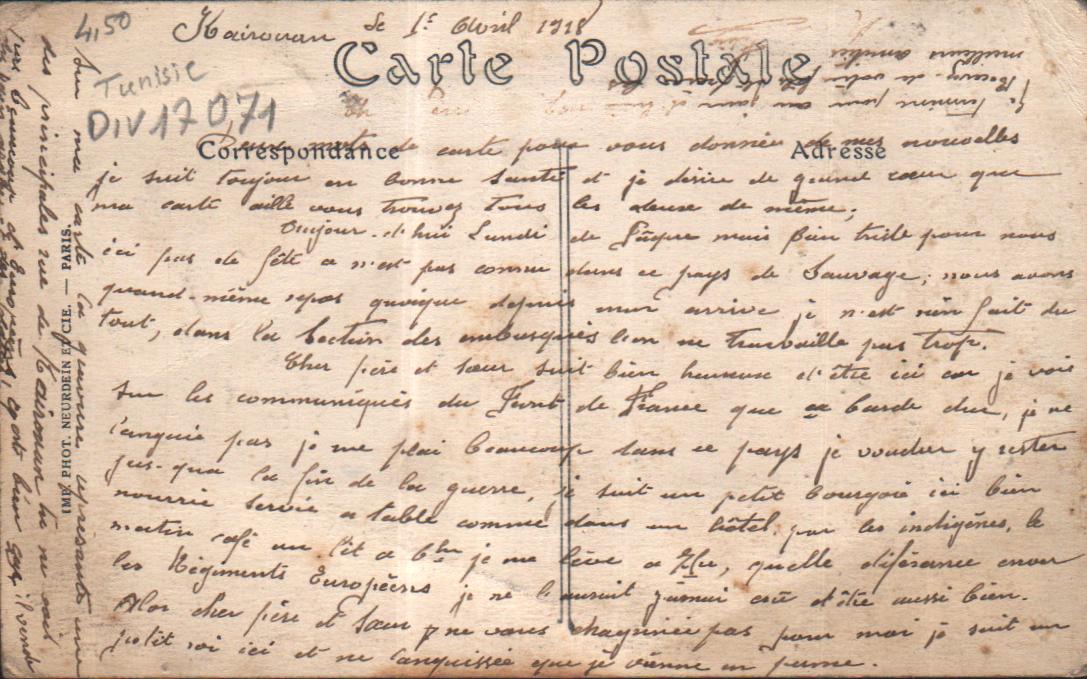 4,50
Kairouan le 1er Avril 1918
Carte Postale
Tunisie
DIV 17 071
Correspondance
Adresse
mots de carte pour vous donnée de mes nouvelles
je suit toujour en bonne santé et je désire de grand cœur que
ma carte aille vous trouvez tous les deuse de même;
Aujour-d'hui Lundi de Pâque mais bien triste pour nous
ici pas de fête a n'est pas connu dans ce pays de Sauvage; nous avons
quand-même repos quoique depuis mon arrive je n'est rien fait du
tout, dans la Section des embusqués l'on ne travaille pas trop.
Cher père et sœur suit bien heureuse d'être ici car je vois
sur les communiqués du Front de France que ça barde dur, je ne
languie pas je me plai beaucoup dans ce pays je voudrer y rester
jus-qua la fin de la guerre, je suit un petit bourgois ici bien
nourrie servie a table comme dans un hôtel par les indigènes, le
matin café au lit a 6hu je me lève a 7hu, quelle diférance avec
les Régiments Européens je ne l'aurait jamai crû d'être aussi bien.
Alor cher père et sœur ne vous chagrinée pas pour moi je suit un
petit roi ici et ne languissée que je vienne en perme.
Sur ma carte la gravure représante une
des principales rue de Kairouan tu ne vois
IMP. PHOT. NEURDEIN ET CIE. — PARIS.
Je termine pour au jour d'hui
Recevez de votre fils et
meilleure amitiés